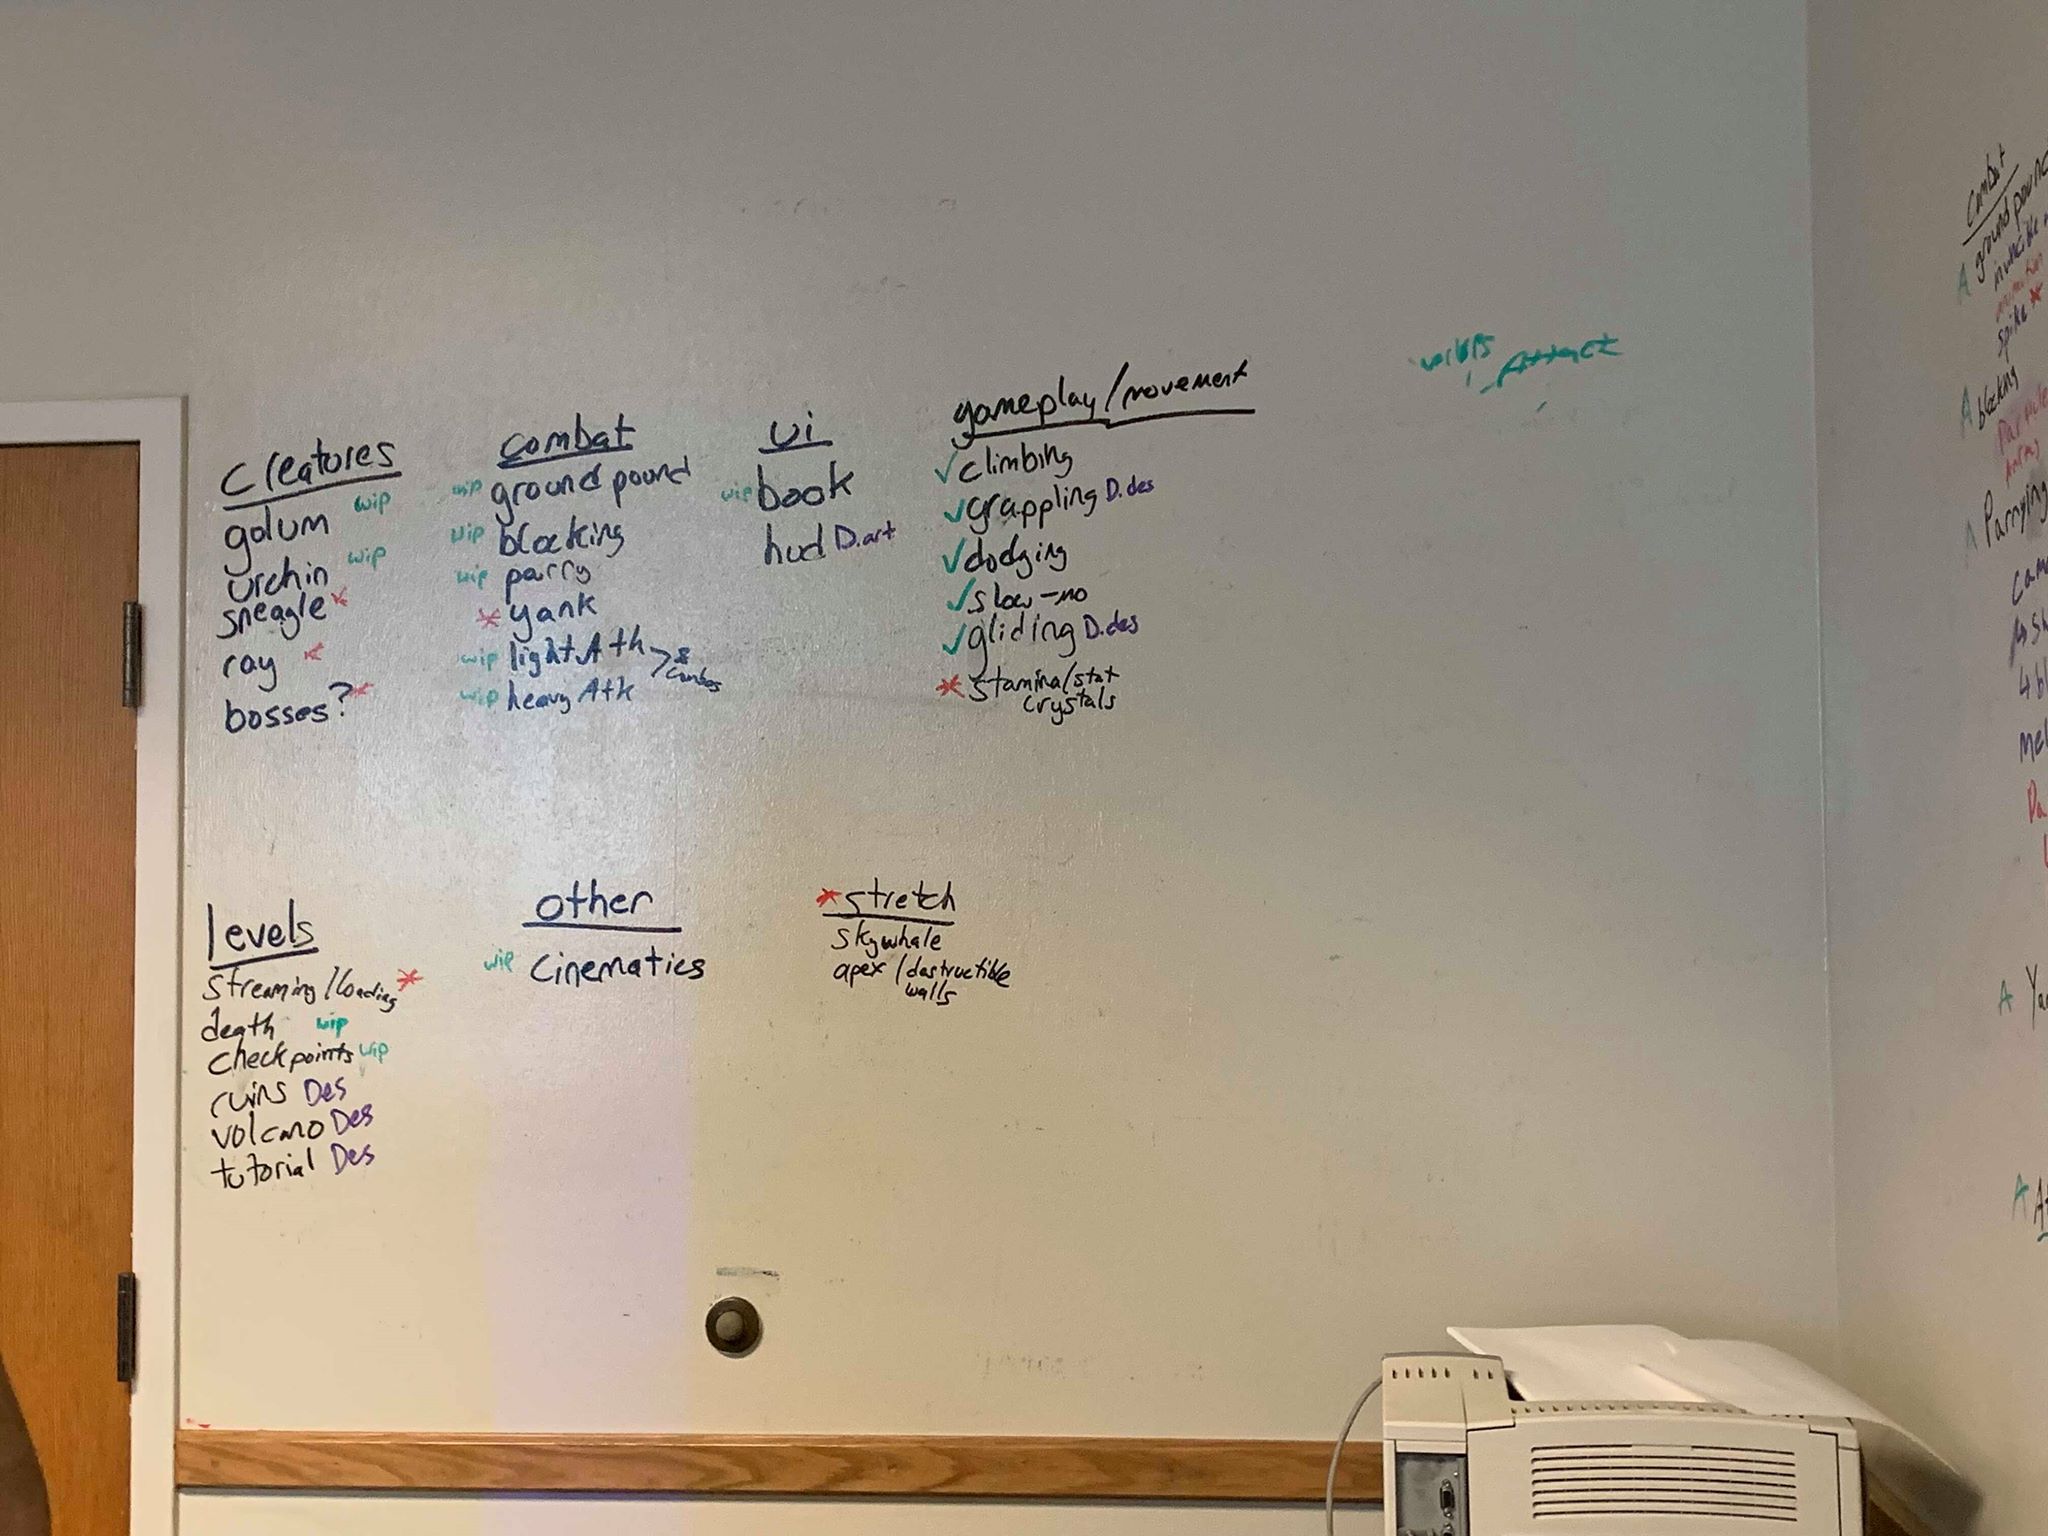 creatures
golum wip
urchin wip
sneagle *
ray *
bosses? *
combat
wip ground pound
wip blocking
wip parry
* yank
wip light Atk > & combos
wip heavy Atk
ui
wip book
hud D.art
gameplay/movement
✓ climbing
✓ grappling D.des
✓ dodging
✓ slow-mo
✓ gliding D.des
* stamina/stat
crystals
levels
streaming/loading *
death wip
checkpoints wip
ruins Des
volcano Des
tutorial Des
other
wip cinematics
* stretch
skywhale
apex/destructible
walls
Combat
A ground
spike *
A blocking
A Parrying
A
A